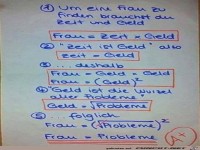 ① Um eine Frau zu
finden brauchst du
Zeit und Geld
Frau = Zeit × Geld
② "Zeit ist Geld" also
Zeit = Geld
③ ... deshalb
Frau = Geld × Geld
Frau = (Geld)²
④ "Geld ist die Wurzel
aller Probleme"
Geld = √Probleme
⑤ ... folglich
Frau = (√Probleme)²
Frau = Probleme